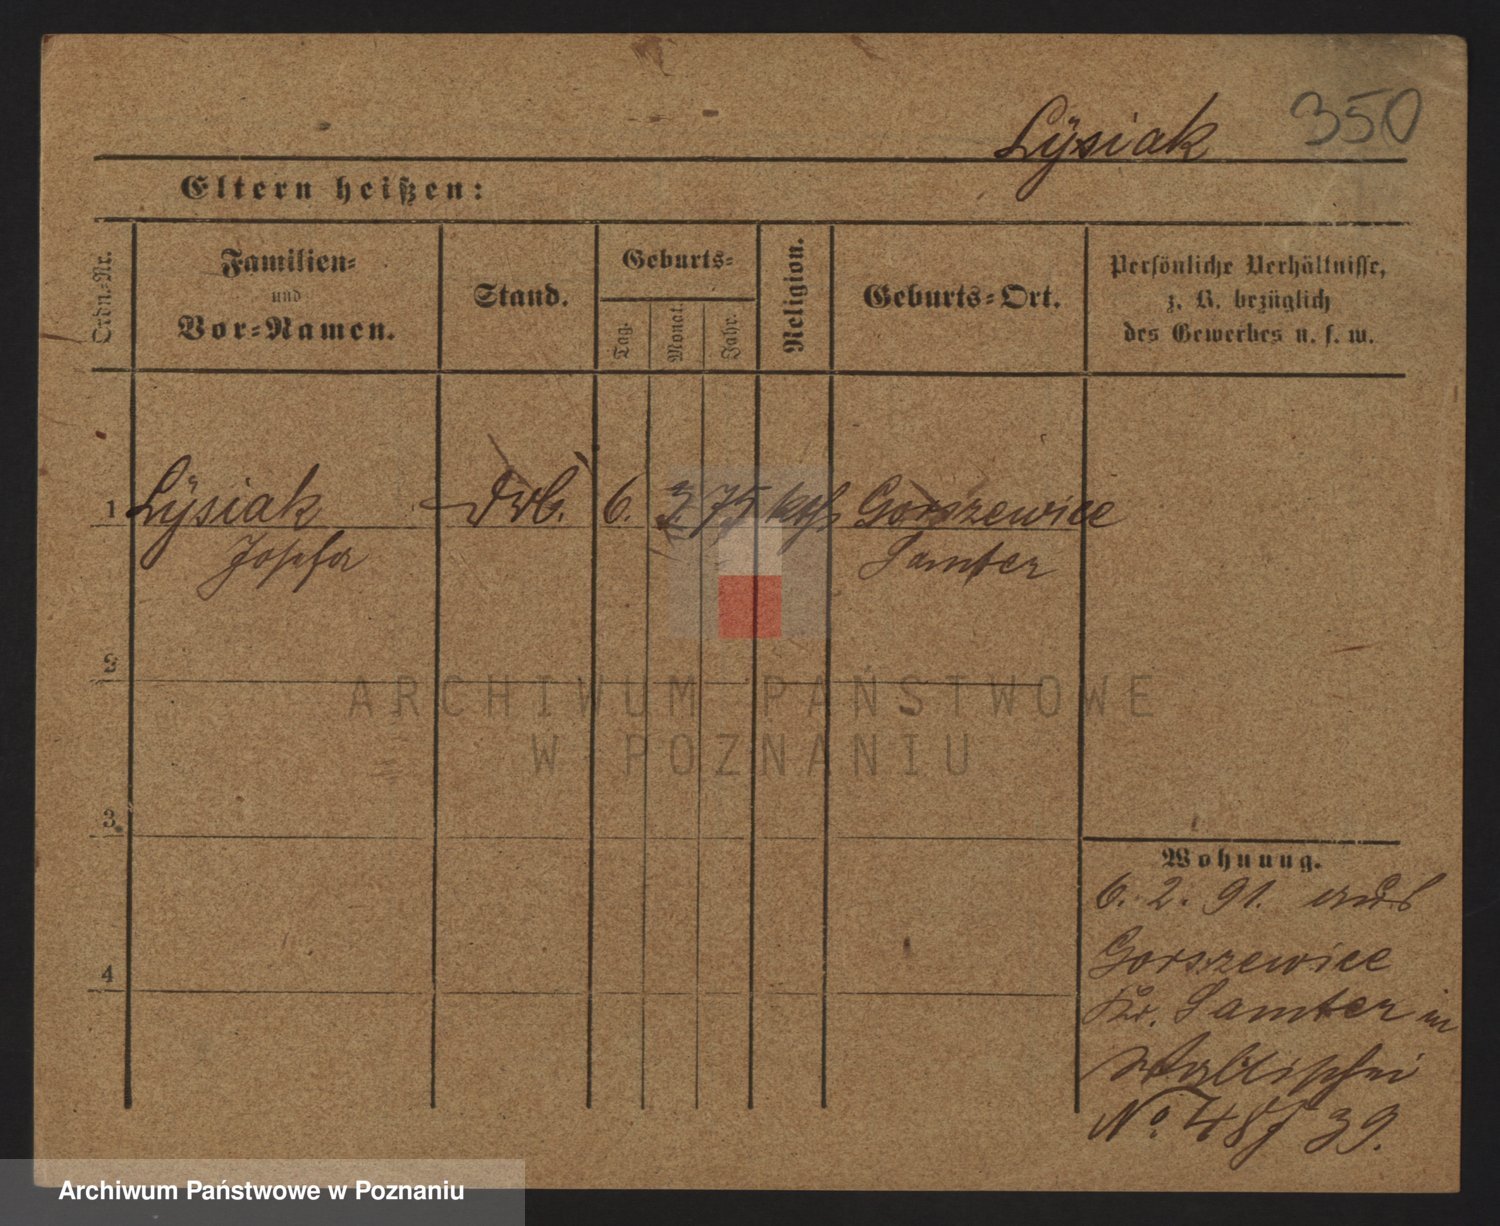 350
Lÿsiak
Eltern heißen:
Ordn.-Nr.
Familien-
und
Vor-Namen.
Stand.
Geburts-
Tag.
Monat.
Jahr.
Religion.
Geburts-Ort.
Persönliche Verhältnisse,
z. B. bezüglich
des Gewerbes u. s. w.
1 Lÿsiak 6. 3. 75 kth Gorszewice
Josefa Samter
2
ARCHIWUM PAŃSTWOWE
W POZNANIU
3
4
Wohnung.
6. 2. 91. aus
Gorszewice
Kr. Samter in
Wallischei
No.
39.
Archiwum Państwowe w Poznaniu